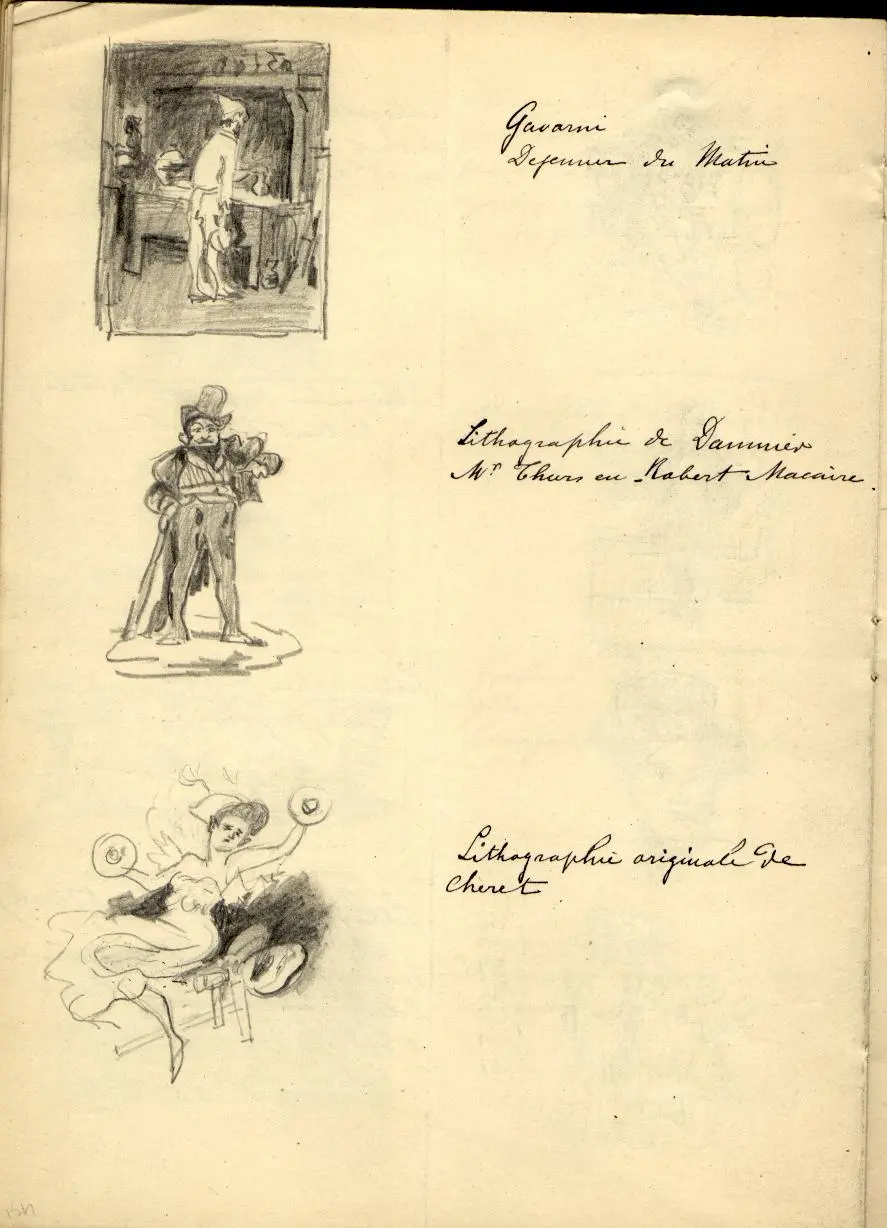 Gavarni
Dejeuner du Matin
Lithographie de Daumier
Mr Thiers en Robert Macaire.
Lithographie originale de
Cheret